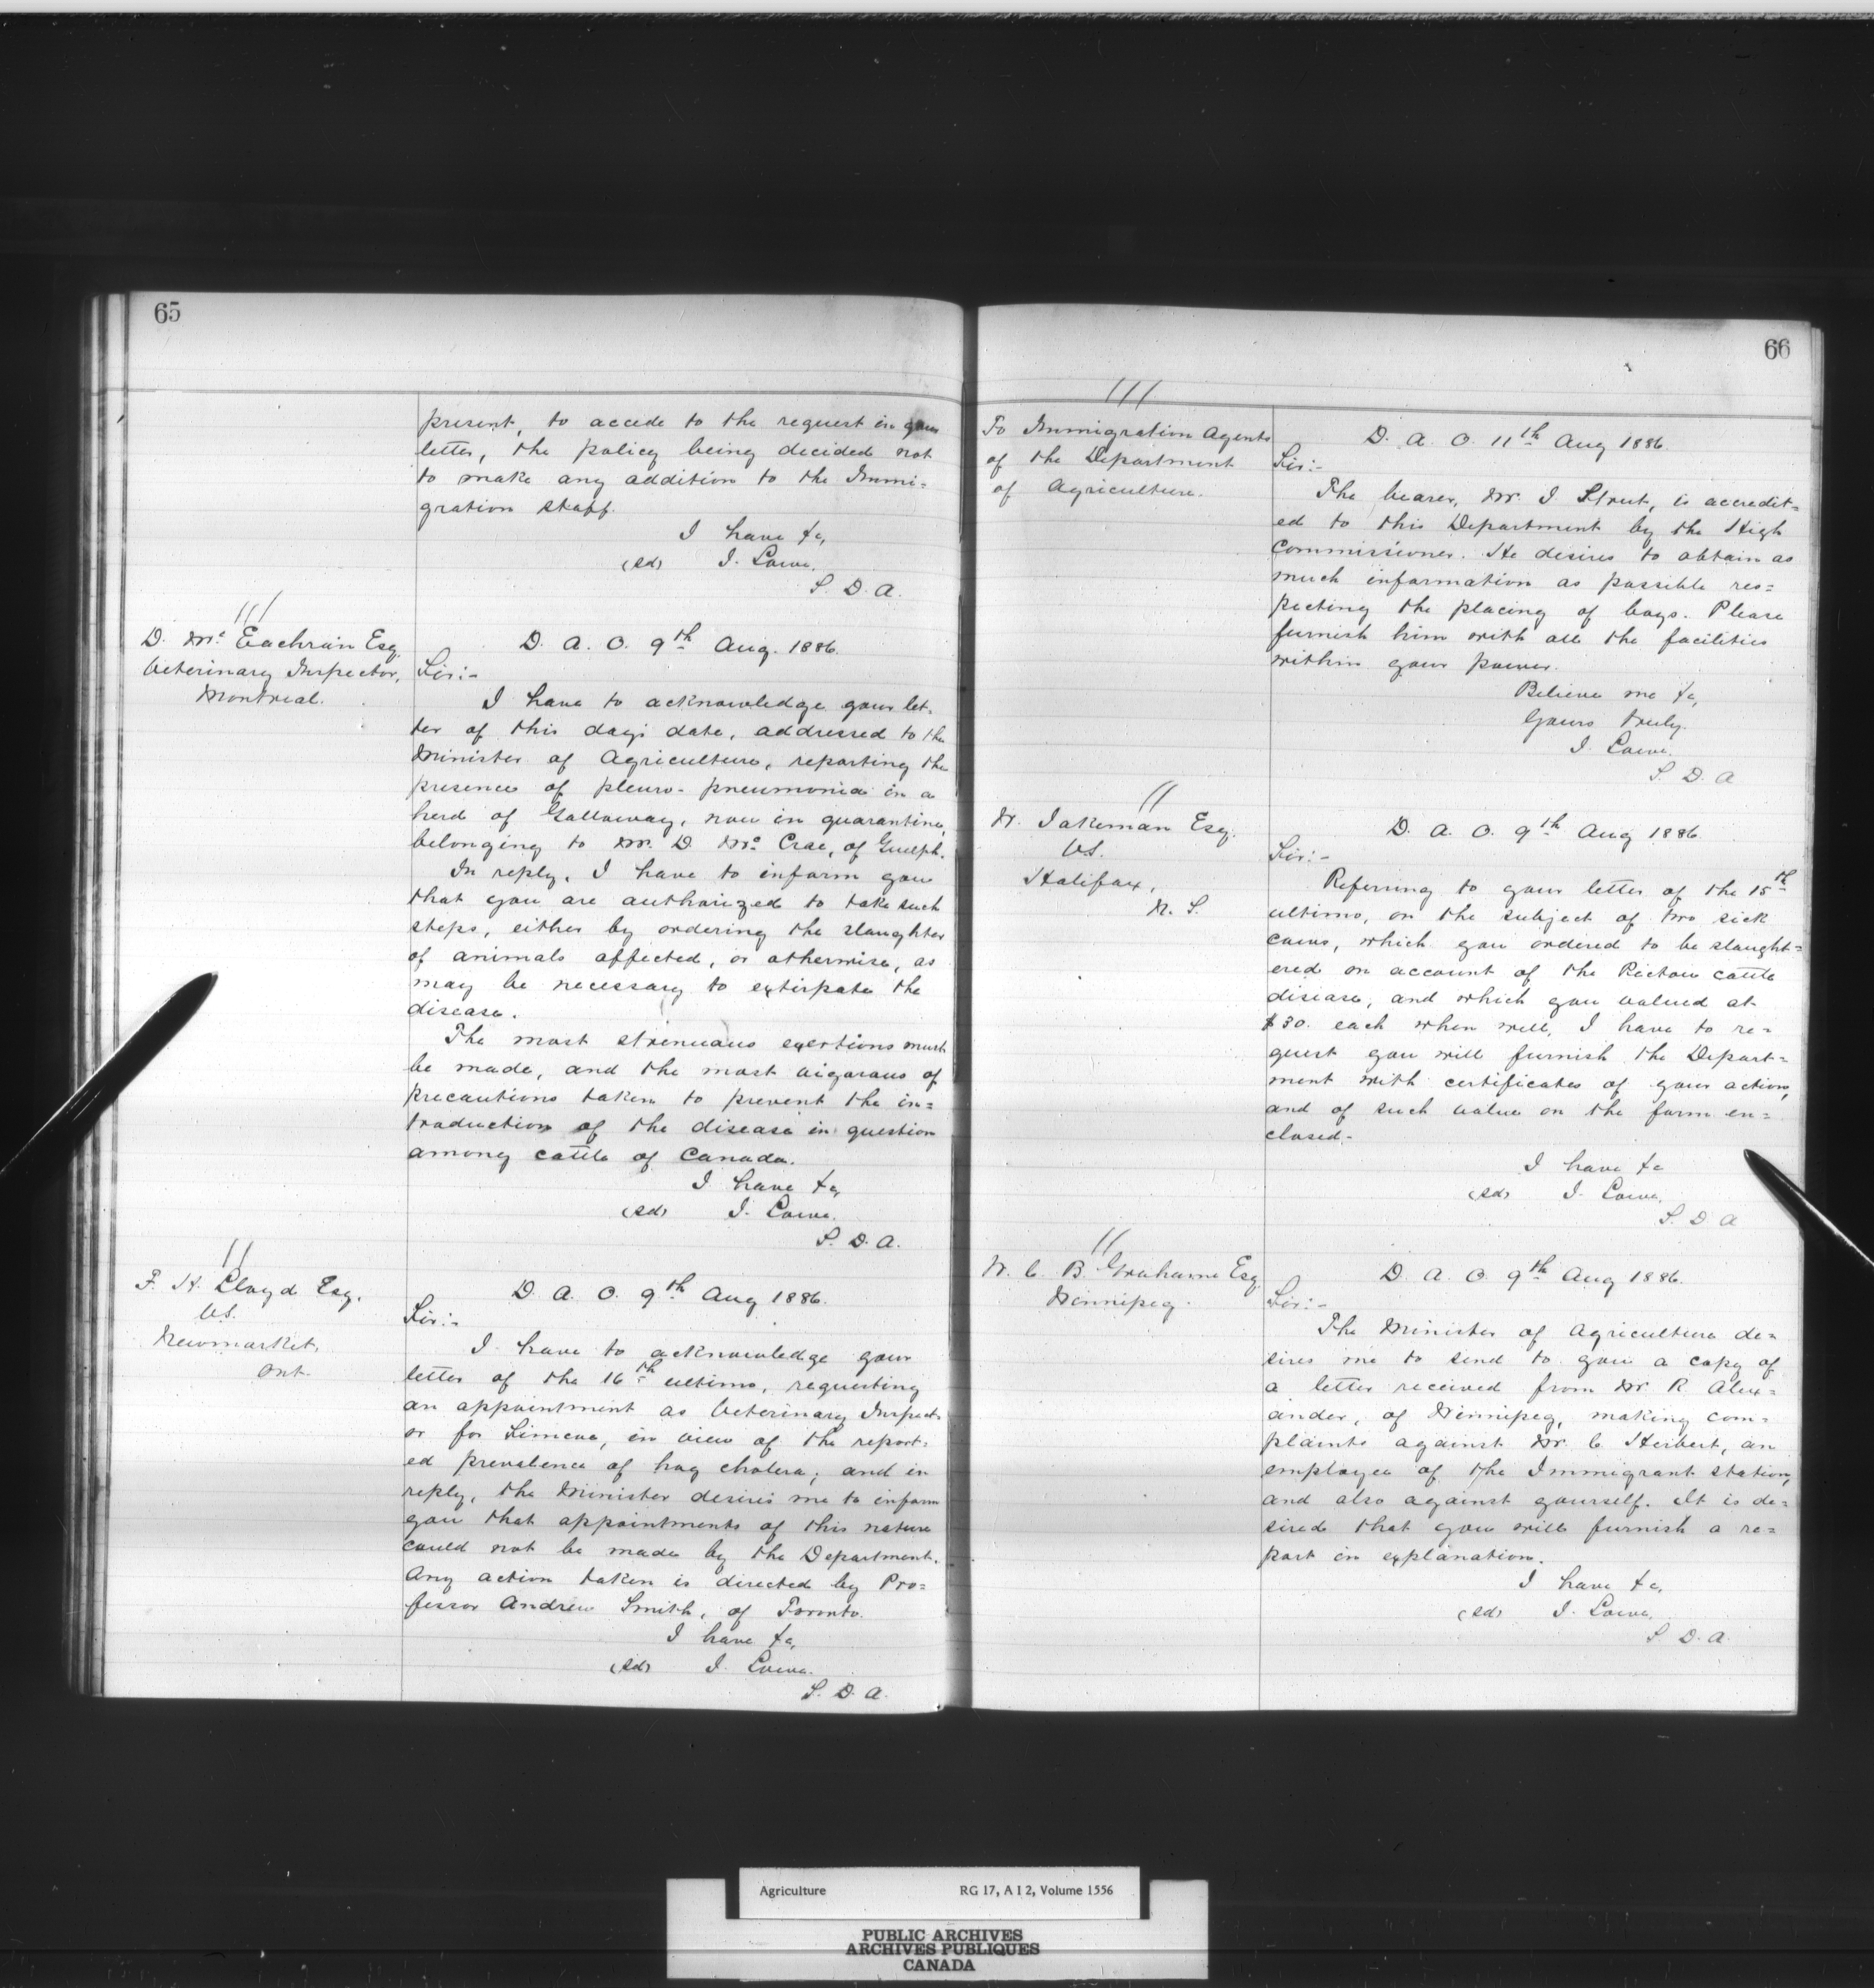 65
present, to accede to the request in your
letter, the policy being decided not
to make any addition to the Immi=
gration staff.
I have &c,
(sd) J. Lowe.
S. D. A.
D. Mc Eachran Esq.
Veterinary Inspector,
Montreal.
D. A. O. 9th Aug. 1886.
Sir:-
I have to acknowledge your let-
ter of this day's date, addressed to the
Minister of Agriculture, reporting the
presence of pleuro-pneumonia in a
herd of Galloway, now in quarantine,
belonging to Mr. D. Mc Crae, of Guelph.
In reply, I have to inform you
that you are authorized to take such
steps, either by ordering the slaughter
of animals affected, or otherwise, as
may be necessary to extirpate the
disease.
The most strenuous exertions must
be made, and the most vigorous of
precautions taken to prevent the in=
troduction of the disease in question
among cattle of Canada.
I have &c,
(sd) J. Lowe.
S. D. A.
F. H. Lloyd Esq.
V.S.
Newmarket,
Ont.
D. A. O. 9th Aug 1886.
Sir:-
I have to acknowledge your
letter of the 16th ultimo, requesting
an appointment as Veterinary Inspect-
or for Simcoe, in view of the report-
ed prevalence of hog cholera; and in
reply, the Minister desires me to inform
you that appointments of this nature
could not be made by the Department.
Any action taken is directed by Pro=
fessor Andrew Smith, of Toronto.
I have &c,
(sd) J. Lowe.
S. D. A.
66
To Immigration Agents
of the Department
of Agriculture.
D. A. O. 11th Aug 1886.
Sir:-
The bearer, Mr. J. Strut, is accredit=
ed to this Department by the High
Commissioner. He desires to obtain as
much information as possible res=
pecting the placing of boys. Please
furnish him with all the facilities
within your power.
Believe me &c,
Yours truly.
J. Lowe.
S. D. A
W. Jakeman Esq.
V.S.
Halifax,
N. S.
D. A. O. 9th Aug 1886.
Sir:-
Referring to your letter of the 15th
ultimo, on the subject of two sick
cows, which you ordered to be slaught=
ered on account of the Pictou cattle
disease, and which you valued at
$30. each when well, I have to re=
quest you will furnish the Depart=
ment with certificates of your action,
and of such value on the form en=
closed.-
I have &c
(sd) J. Lowe.
S. D. A
W. C. B. Grahame Esq.
Winnipeg.
D. A. O. 9th Aug 1886.
Sir:-
The Minister of Agriculture de=
sires me to send to you a copy of
a letter received from Mr R. Alex=
ander, of Winnipeg, making com=
plaints against Mr. C. Herbert, an
employee of the Immigrant station,
and also against yourself. It is de=
sired that you will furnish a re=
port in explanation.
I have &c,
(sd) J. Lowe.
S. D. A.
Agriculture RG 17, A I 2, Volume 1556
PUBLIC ARCHIVES
ARCHIVES PUBLIQUES
CANADA